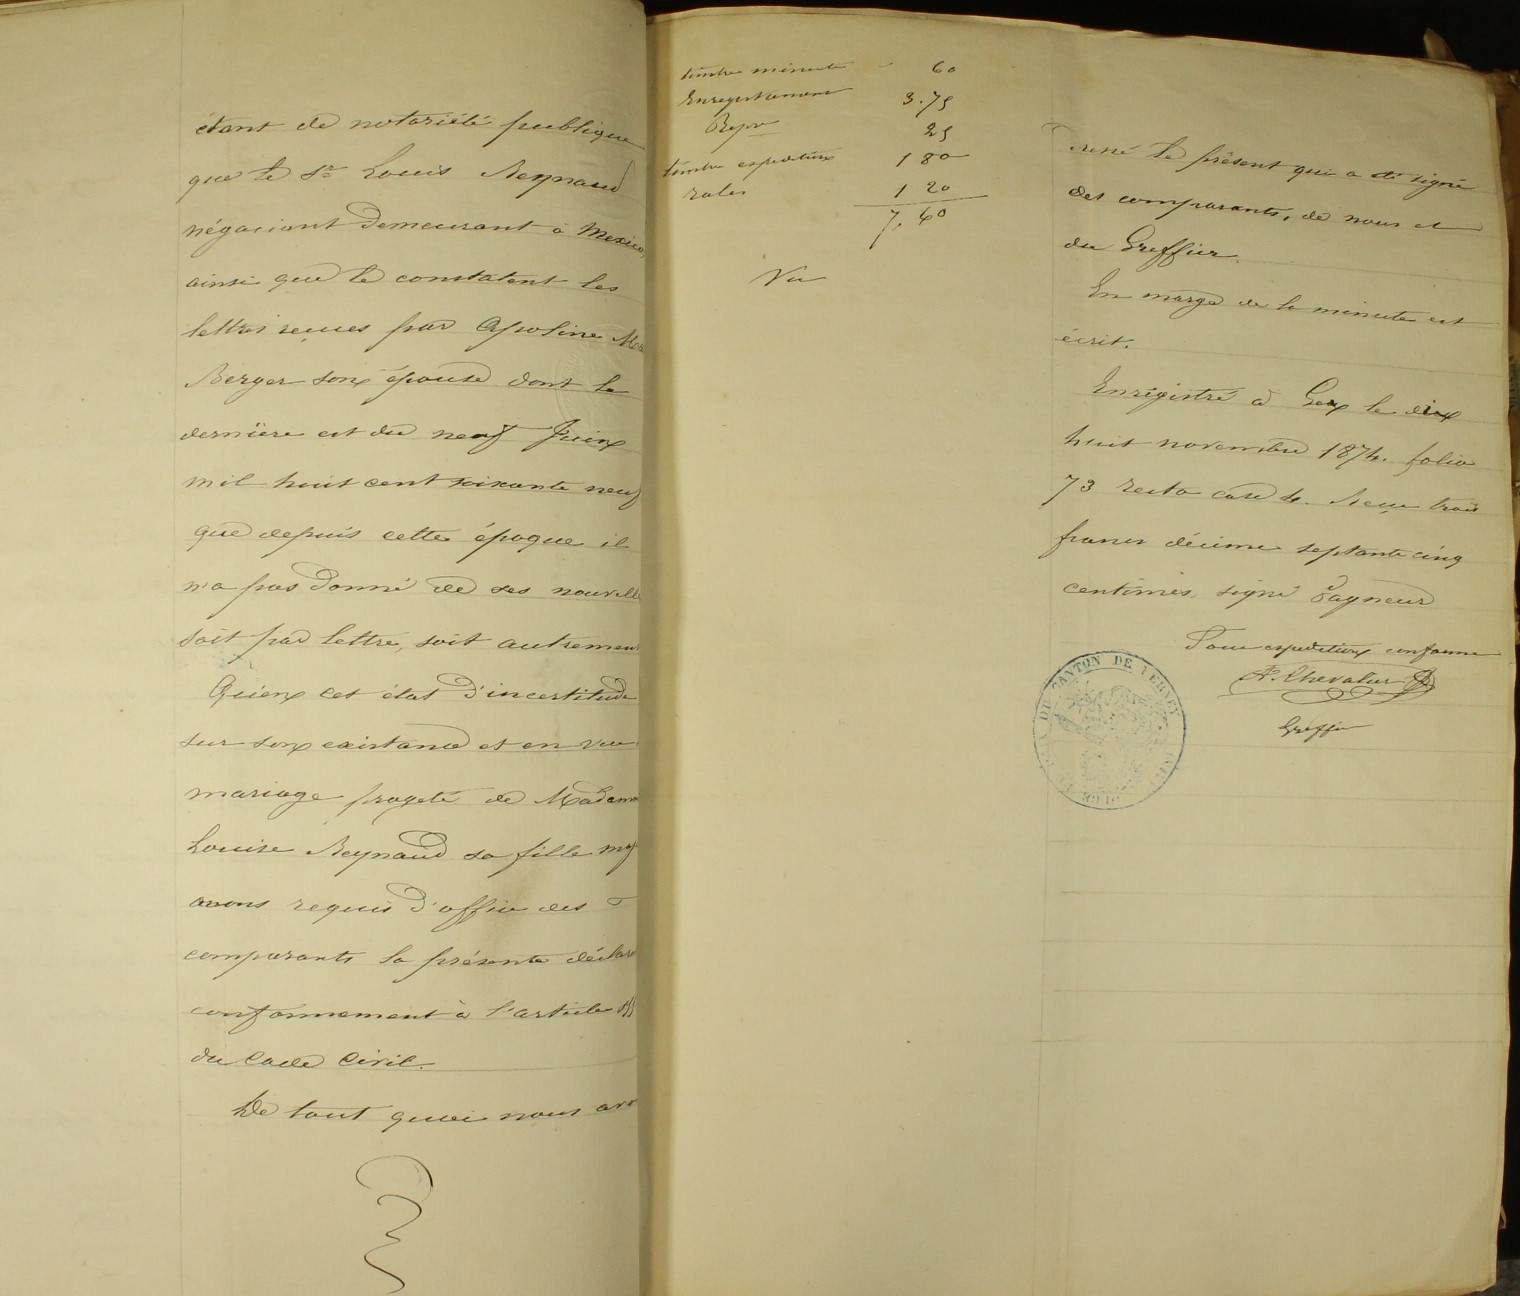 étant de notoriété publique
que le Sr Louis Reynaud
négociant demeurant à Mexico,
ainsi que le constatent les
lettres reçues par Apoline
Berger son épouse dont la
dernière est du neuf Juin
mil huit cent soixante neuf
que depuis cette époque il
n'a pas donné de ses nouvelle
soit par lettre, soit autrement
Qu'en cet état d'incertitude
sur son existance et en vue
mariage projeté de Madem
Louise Reynaud sa fille
avons requis d'office des
comparants la présente déclar
conformement à l'article 155
du Code Civil.
De tout quoi nous avo
timbre minute 60
Enregistrement 3.75
Repre 25
timbre expedition 1 80
roles 1 20
7,60
Vu
le présent qui a été signé
des comparants, de nous et
du Greffier.
En marge de la minute est
écrit.
Enrégistré à Gex le dix
huit novembre 1874. folio
73 recto case 4. Reçu trois
francs décime septante cinq
centimes. signé
Pour expedition conforme
Chevalier
Greffier
CANTON DE FERNEY